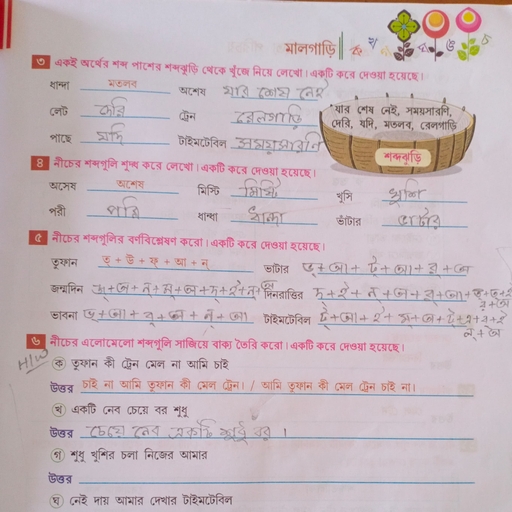 মালগাড়ি ক খ গ ঘ ঙ চ
৩ একই অর্থের শব্দ পাশের শব্দঝুড়ি থেকে খুঁজে নিয়ে লেখো। একটি করে দেওয়া হয়েছে।
ধান্দা মতলব অশেষ যার শেষ নেই
লেট দেরি ট্রেন রেলগাড়ি
পাছে যদি টাইমটেবিল সময়সারণি
যার শেষ নেই, সময়সারণি,
দেরি, যদি, মতলব, রেলগাড়ি
শব্দঝুড়ি
৪ নীচের শব্দগুলি শুদ্ধ করে লেখো। একটি করে দেওয়া হয়েছে।
অসেষ অশেষ মিস্টি মিষ্টি খুসি খুশি
পরী পরি ধান্ধা ধান্দা ভাঁটার ভাটার
৫ নীচের শব্দগুলির বর্ণবিশ্লেষণ করো। একটি করে দেওয়া হয়েছে।
তুফান ত্ + উ + ফ্ + আ + ন্ ভাটার ভ্+আ+ট্+আ+র্+অ
জন্মদিন জ্+অ+ন্+ম্+অ+দ্+ই+ন্+অ দিনরাত্তির দ্+ই+ন্+অ+র্+আ+ত্+ত্+ই+র্+অ
ভাবনা ভ্+আ+ব্+অ+ন্+আ টাইমটেবিল ট্+আ+ই+ম্+অ+ট্+এ+ব্+ই+ল্+অ
৬ নীচের এলোমেলো শব্দগুলি সাজিয়ে বাক্য তৈরি করো। একটি করে দেওয়া হয়েছে।
H/W ক তুফান কী ট্রেন মেল না আমি চাই
উত্তর চাই না আমি তুফান কী মেল ট্রেন। / আমি তুফান কী মেল ট্রেন চাই না।
খ একটি নেব চেয়ে বর শুধু
উত্তর চেয়ে নেব একটি শুধু বর ।
গ শুধু খুশির চলা নিজের আমার
উত্তর
ঘ নেই দায় আমার দেখার টাইমটেবিল